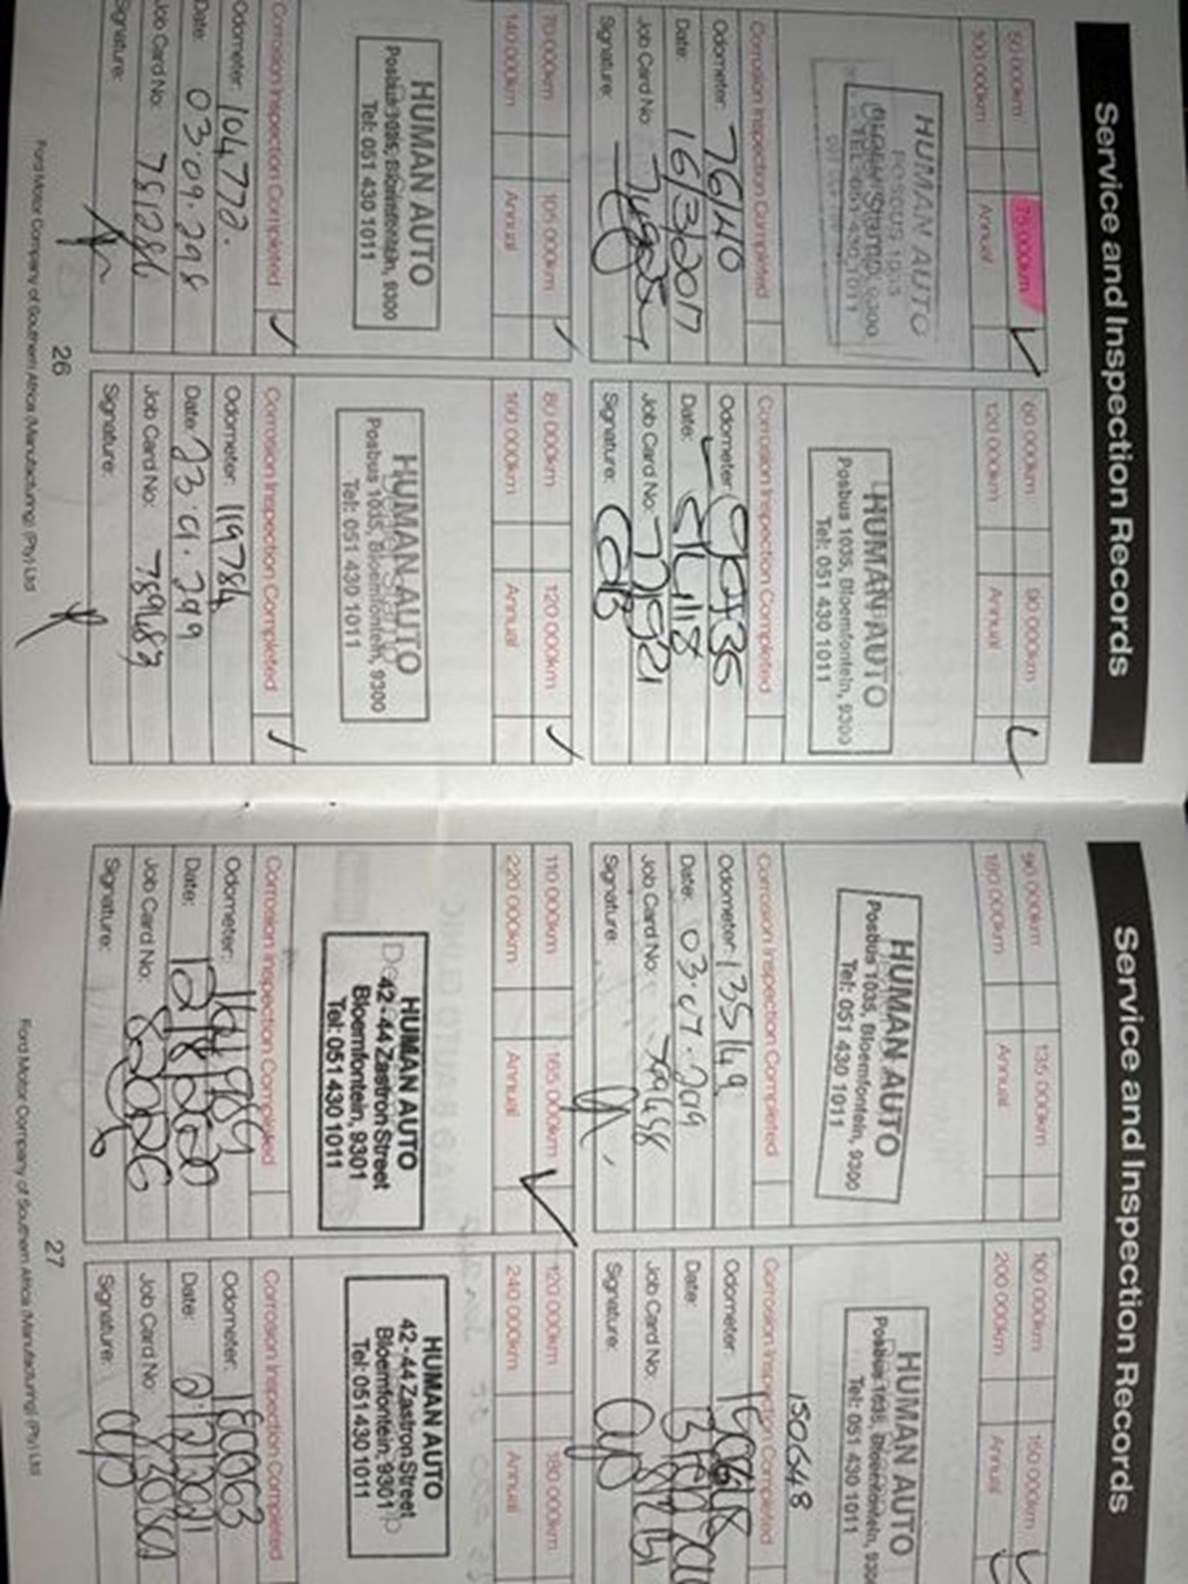 Service and Inspection Records
50 000km
75 000km
100 000km
Annual
HUMAN AUTO
POSBUS 1035
TEL: 051 430 1011
Corrosion Inspection Completed
Odometer: 76140
Date: 16/3/2017
Job Card No:
Signature:
60 000km
90 000km
120 000km
Annual
HUMAN AUTO
Posbus 1035, Bloemfontein, 9300
Tel: 051 430 1011
Corrosion Inspection Completed
Odometer:
Date:
Job Card No:
Signature:
70 000km
105 000km
140 000km
Annual
HUMAN AUTO
Posbus 1035, Bloemfontein, 9300
Tel: 051 430 1011
Corrosion Inspection Completed
Odometer: 104772.
Date: 03.09.298
Job Card No: 781286
Signature:
80 000km
120 000km
160 000km
Annual
HUMAN AUTO
Posbus 1035, Bloemfontein, 9300
Tel: 051 430 1011
Corrosion Inspection Completed
Odometer: 119784
Date:
Job Card No:
Signature:
26
Ford Motor Company of Southern Africa (Manufacturing) (Pty) Ltd
Service and Inspection Records
90 000km
135 000km
180 000km
Annual
HUMAN AUTO
Posbus 1035, Bloemfontein, 9300
Tel: 051 430 1011
Corrosion Inspection Completed
Odometer: 135149
Date: 03.07.2019
Job Card No:
Signature:
100 000km
150 000km
200 000km
Annual
HUMAN AUTO
Posbus 1035, Bloemfontein, 9300
Tel: 051 430 1011
150648
Corrosion Inspection Completed
Odometer:
Date:
Job Card No:
Signature:
110 000km
165 000km
220 000km
Annual
HUMAN AUTO
42-44 Zastron Street
Bloemfontein, 9301
Tel: 051 430 1011
Corrosion Inspection Completed
Odometer:
Date:
Job Card No:
Signature:
120 000km
180 000km
240 000km
Annual
HUMAN AUTO
42-44 Zastron Street
Bloemfontein, 9301
Tel: 051 430 1011
Corrosion Inspection Completed
Odometer: 180063
Date:
Job Card No:
Signature:
27
Ford Motor Company of Southern Africa (Manufacturing) (Pty) Ltd